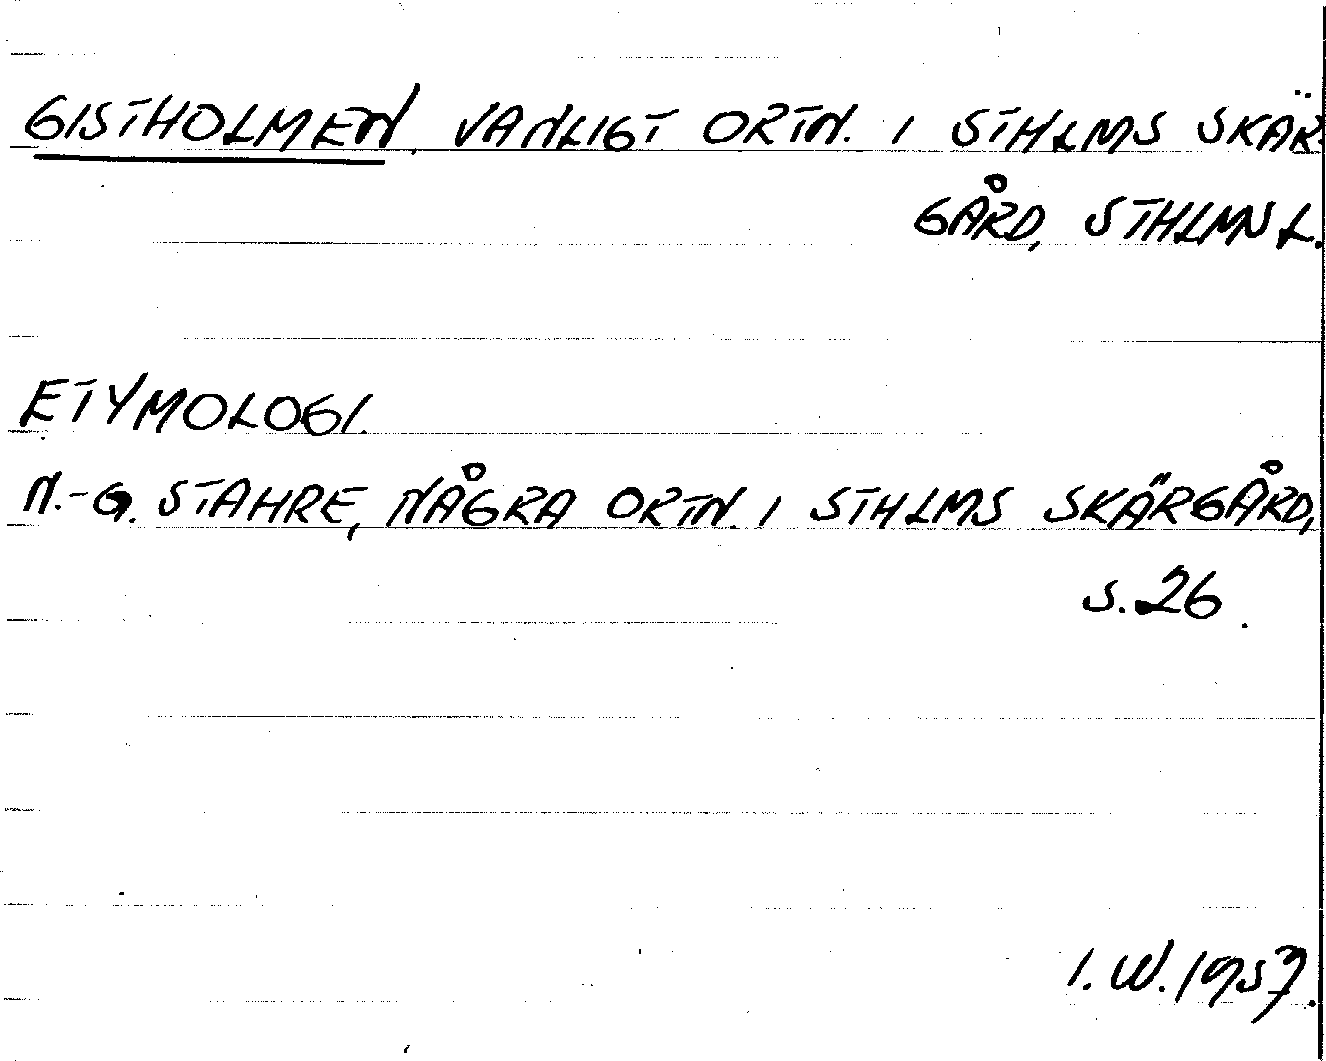 GISTHOLMEN, VANLIGT ORTN. I STHLMS SKÄR-
GÅRD, STHLMS L.
ETYMOLOGI.
N.-G. STAHRE, NÅGRA ORTN. I STHLMS SKÄRGÅRD,
S. 26.
I. W. 1957.